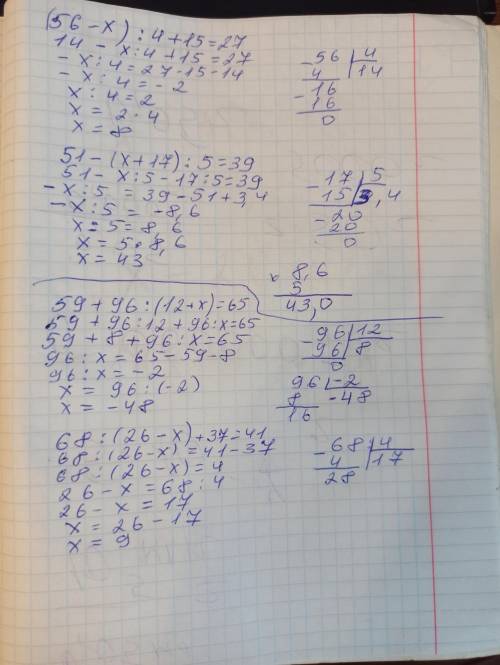 (56-x) : 4+15=27
14 - x:4+15=27
- x:4=27-15-14
- x:4=-2
x:4=2
x = 2·4
x = 8
-56 | 4
4 14
-16
16
0
51-(x+17):5=39
51-x:5-17:5=39
-x:5 = 39-51+3,4
-x:5 = -8,6
x:5=8,6
x=5·8,6
x=43
-17 | 5
15 3,4
-20
20
0
x 8,6
5
43,0
59+96:(12+x)=65
59+96:12+96:x=65
59+8+96:x=65
96:x=65-59-8
96:x=-2
x = 96:(-2)
x = -48
-96 | 12
96 8
0
96 | -2
8 -48
16
68:(26-x)+37=41
68:(26-x)=41-37
68:(26-x)=4
26-x=68:4
26-x=17
x=26-17
x=9
-68 | 4
4 17
28